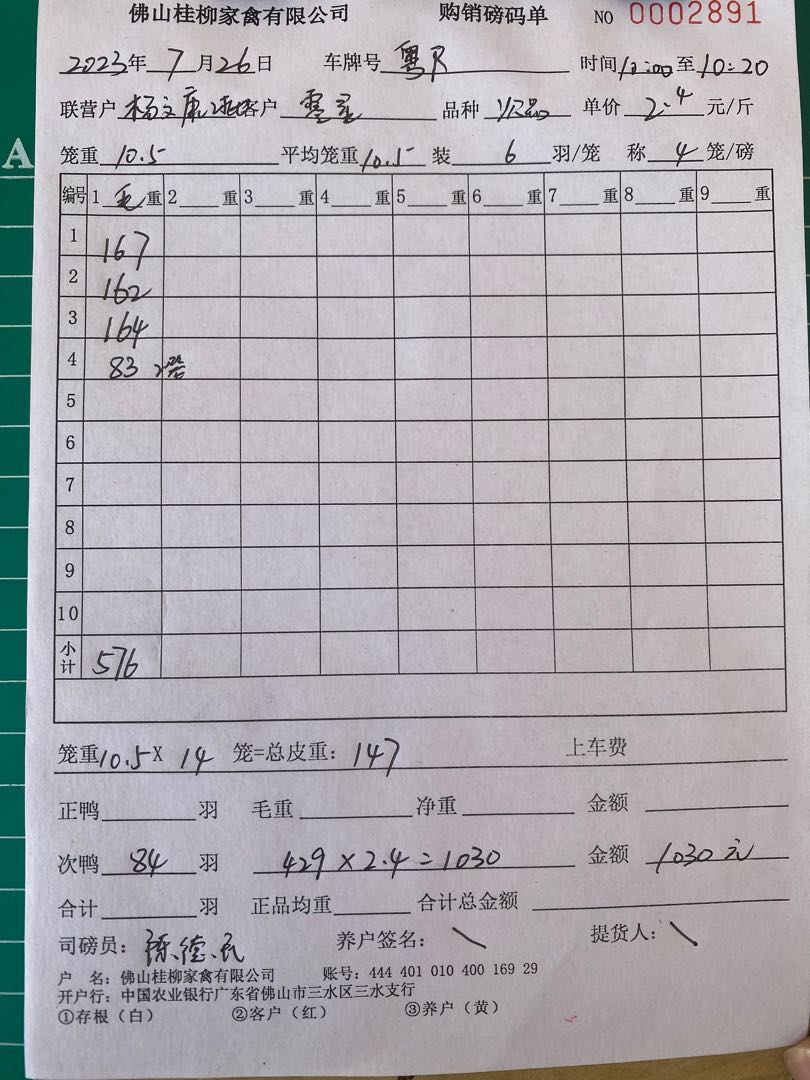 佛山桂柳家禽有限公司 购销磅码单 NO 0002891
2023年7月26日 车牌号 粤R 时间10:00至10:20
联营户 杨文康 客户 零星 品种 次品 单价 2.4 元/斤
笼重 10.5 平均笼重 10.5 装 6 羽/笼 称 4 笼/磅
编号 1 毛 重 2 重 3 重 4 重 5 重 6 重 7 重 8 重 9 重
1 167
2 162
3 164
4 83 2笼
5
6
7
8
9
10
小计 576
笼重10.5X 14 笼=总皮重: 147 上车费
正鸭 羽 毛重 净重 金额
次鸭 84 羽 429×2.4=1030 金额 1030元
合计 羽 正品均重 合计总金额
司磅员: 养户签名: \ 提货人: \
户 名: 佛山桂柳家禽有限公司 账号: 444 401 010 400 169 29
开户行: 中国农业银行广东省佛山市三水区三水支行
①存根(白) ②客户(红) ③养户(黄)
A